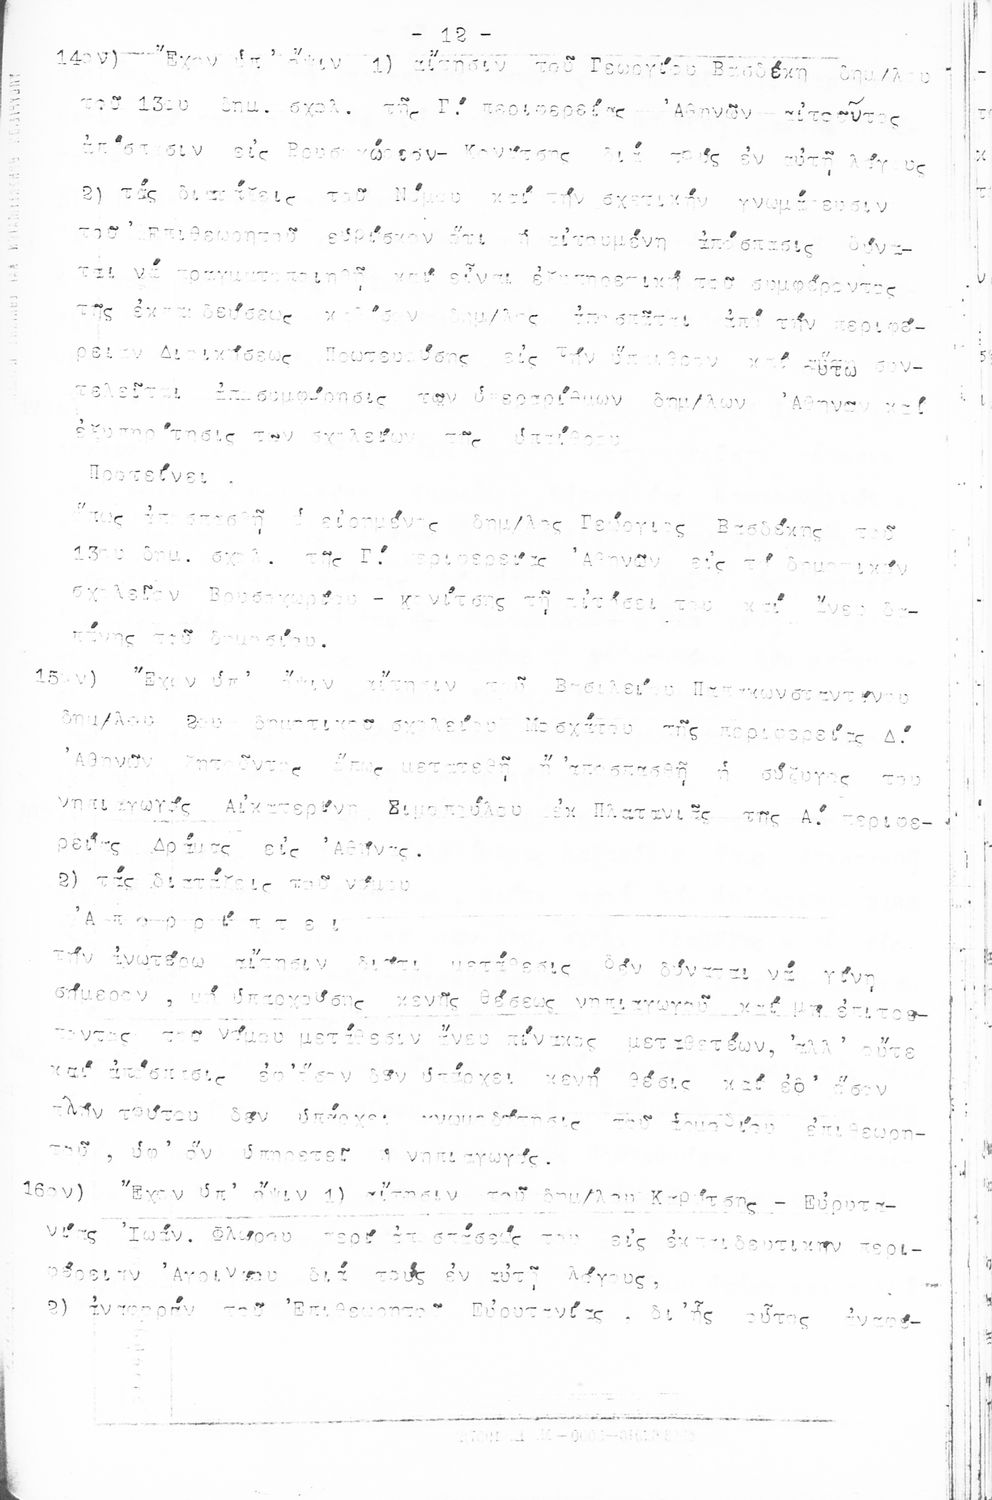 - 12 -
14ον) Ἔχον ὑπ' ὄψιν 1) αἴτησιν τοῦ Γεωργίου Βασδέκη δημ/λου
τοῦ 13ου δημ. σχολ. τῆς Γ! περιφερείας Ἀθηνῶν αἰτοῦντος
ἀπόσπασιν εἰς Βουσοχώριον- Κονίτσης διά τούς ἐν αὐτῇ λόγους
2) τάς διατάξεις τοῦ Νόμου καί τήν σχετικήν γνωμάτευσιν
τοῦ Ἐπιθεωρητοῦ εὑρίσκον ὅτι ἡ αἰτουμένη ἀπόσπασις δύνα-
ται νά πραγματοποιηθῇ καί εἶναι ἐξυπηρετική τοῦ συμφέροντος
τῆς ἐκπαιδεύσεως καθ'ὅσον δημ/λος ἀποσπᾶται ἀπό τήν περιφέ-
ρειαν Διοικήσεως Πρωτευούσης εἰς τήν ὕπαιθρον καί οὕτω συν-
τελεῖται ἀποσυμφόρησις τῶν ὑπεραρίθμων δημ/λων Ἀθηνῶν καί
ἐξυπηρέτησις τῶν σχολείων τῆς ὑπαίθρου
Προτείνει .
Ὅπως ἀποσπασθῇ ὁ εἰρημένος δημ/λος Γεώργιος Βασδέκης τοῦ
13ου δημ. σχολ. τῆς Γ! περιφερείας Ἀθηνῶν εἰς τό δημοτικόν
σχολεῖον Βουσοχωρίου - Κονίτσης τῇ αἰτήσει του καί ἄνευ δα-
πάνης τοῦ δημοσίου.
15ον) Ἔχον ὑπ' ὄψιν αἴτησιν τοῦ Βασιλείου Παπακωνσταντίνου
δημ/λου 2ου δημοτικοῦ σχολείου Μοσχάτου τῆς περιφερείας Δ!
Ἀθηνῶν ζητοῦντος ὅπως μετατεθῇ ἤ ἀποσπασθῇ ἡ σύζυγος του
νηπιαγωγός Αἰκατερίνη Σιμοπούλου ἐκ Πλατανιᾶς τῆς Α! περιφε-
ρείας Δράμας εἰς Ἀθήνας.
2) τάς διατάξεις τοῦ νόμου
Ἀ π ο ρ ρ ί π τ ε ι
τήν ἀνωτέρω αἴτησιν διότι μετάθεσις δέν δύναται νά γίνῃ
σήμερον , μή ὑπαρχούσης κενῆς θέσεως νηπιαγωγοῦ καί μή ἐπιτρέ-
ποντος τοῦ νόμου μετάθεσιν ἄνευ πίνακος μεταθετέων, ἀλλ' οὔτε
καί ἀπόσπασις ἐφ'ὅσον δέν ὑπάρχει κενή θέσις καί ἐφ' ὅσον
πλήν τούτου δέν ὑπάρχει γνωμοδότησις τοῦ ἁρμοδίου ἐπιθεωρη-
τοῦ , ὑφ' ὅν ὑπηρετεῖ ἡ νηπιαγωγός.
16ον) Ἔχον ὑπ' ὄψιν 1) αἴτησιν τοῦ δημ/λου Καρίτσης - Εὐρυτα-
νίας Ἰωάν. Φλώρου περί ἀποσπάσεώς του εἰς ἐκπαιδευτικήν περι-
φέρειαν Ἀγρινίου διά τούς ἐν αὐτῇ λόγους,
2) ἀναφοράν τοῦ Ἐπιθεωρητοῦ Εὐρυτανίας . δι'ἧς οὗτος ἀναφέ-